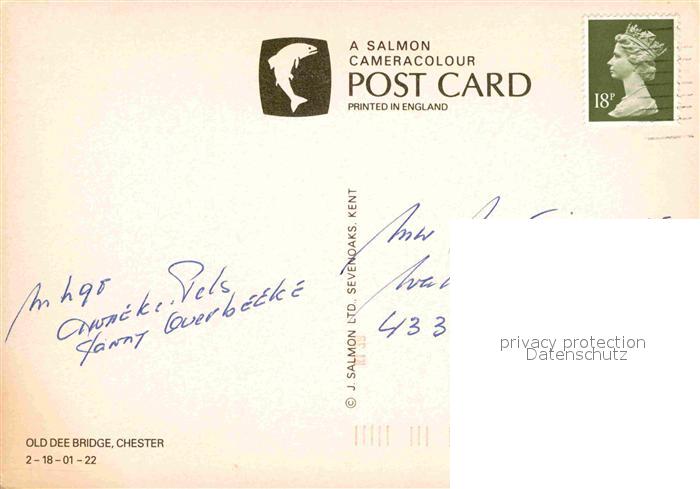 A SALMON
CAMERACOLOUR
POST CARD
PRINTED IN ENGLAND
18P
© J. SALMON LTD., SEVENOAKS, KENT
Anneke Pels
Overbeeke
433
privacy protection
Datenschutz
OLD DEE BRIDGE, CHESTER
2-18-01-22